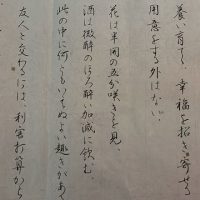 養い育てし、幸福を招き寄せる
用意をする外はない。
花は半開の五分咲きを見、
酒は微酔のほろ酔い加減に飲む
此の中に何ともいえぬよい趣きがあ
友人と交わるには、利害打算から